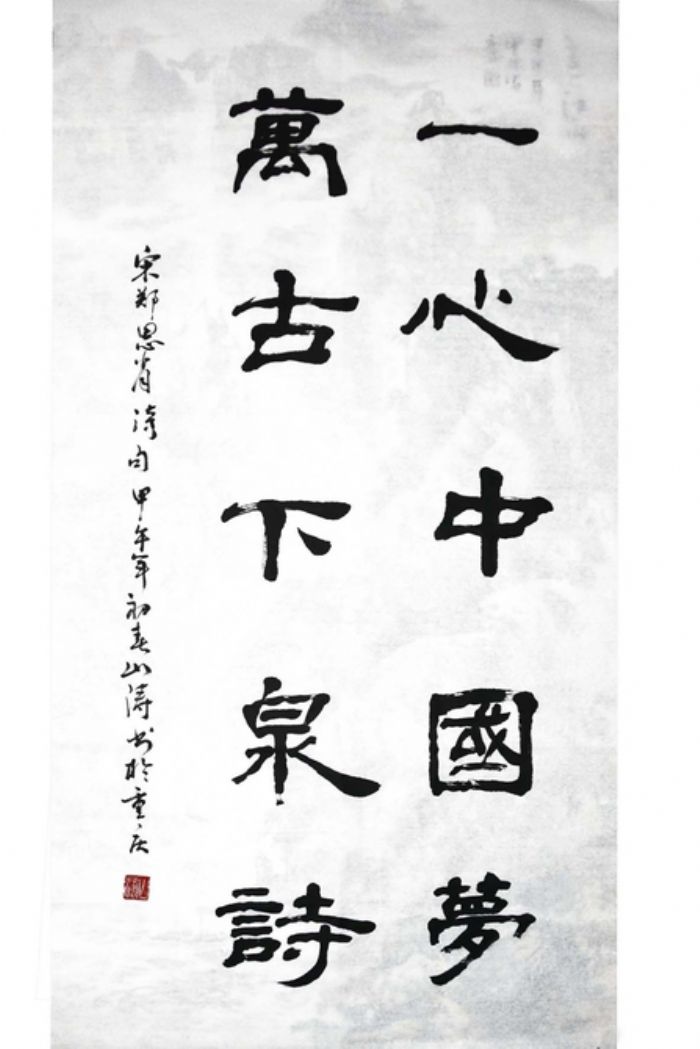 一心中國夢
萬古下泉詩
宋郑思肖詩句甲午年初春山涛书於重庆